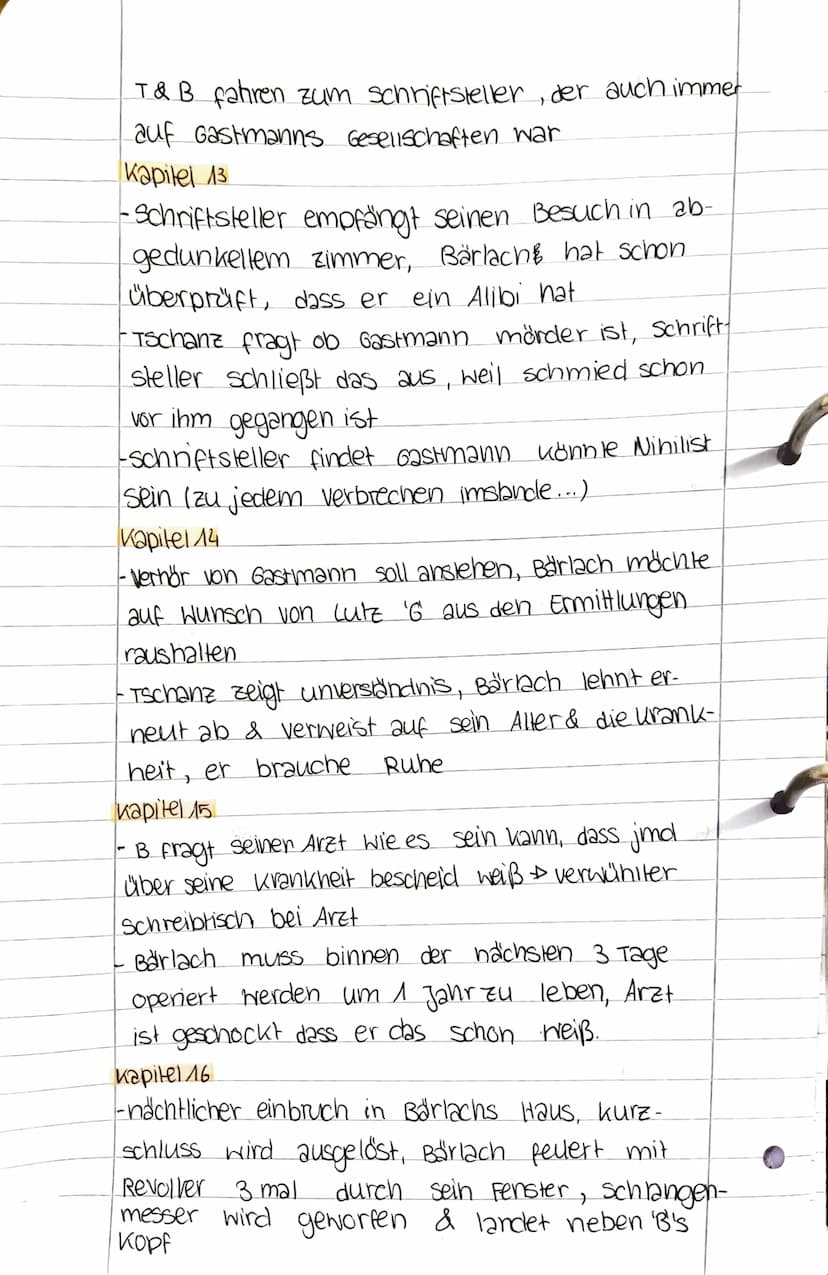 T & B fahren zum Schriftsteller, der auch immer
auf Gastmanns Gesellschaften war
Kapitel 13
- Schriftsteller empfängt seinen Besuch in ab-
gedunkeltem Zimmer, Bärlach hat schon
überprüft, dass er ein Alibi hat
- Tschanz fragt ob Gastmann mörder ist, Schrift-
steller schließt das aus, weil schmied schon
vor ihm gegangen ist
- schriftsteller findet Gastmann könnte Nihilist
sein (zu jedem verbrechen imstande...)
Kapitel 14
- Verhör von Gastmann soll anstehen, Bärlach möchte
auf Wunsch von Lutz 'G aus den Ermittlungen
raushalten
- Tschanz zeigt unverständnis, Bärlach lehnt er-
neut ab & verweist auf sein Alter & die Krank-
heit, er brauche Ruhe
Kapitel 15
- B fragt seinen Arzt wie es sein kann, dass jmd
über seine Krankheit bescheid weiß → verwühlter
schreibtisch bei Arzt
- Bärlach muss binnen der nächsten 3 Tage
operiert werden um 1 Jahr zu leben, Arzt
ist geschockt dass er das schon weiß.
Kapitel 16
- nächtlicher einbruch in Bärlachs Haus, kurz-
schluss wird ausgelöst, Bärlach feuert mit
Revolver 3 mal durch sein Fenster, schlangen-
messer wird geworfen & landet neben 'B's
Kopf